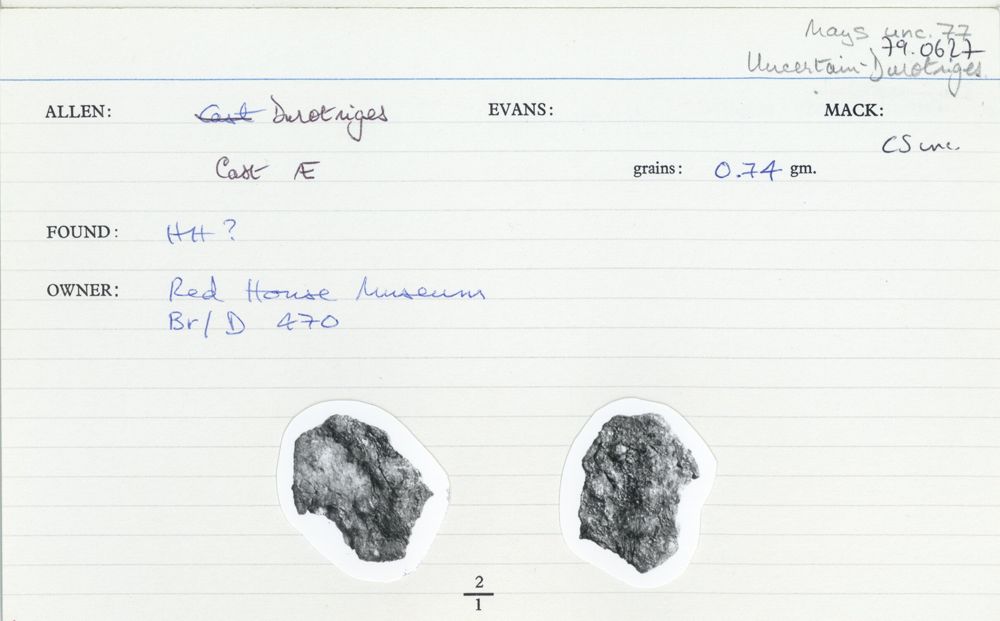 Mays unc. 77
79.0627
Uncertain-Durotriges
ALLEN: Cast Durotriges EVANS: MACK:
CS unc.
Cast Æ grains: 0.74 gm.
FOUND: HH ?
OWNER: Red House Museum
Br/D 470
2
1